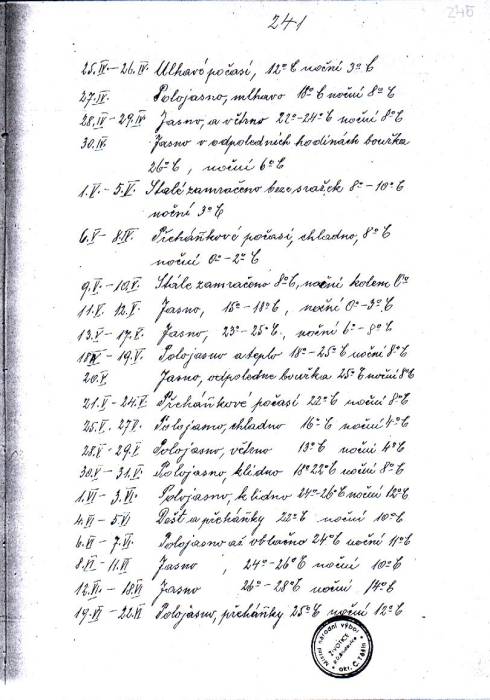 241
240
25.IV. - 26.IV. Mlhavé počasí, 12°C noční 3°C
27.IV. Polojasno, mlhavo 18°C noční 8°C
28.IV - 29.IV Jasno, a větrno 22°-24°C noční 8°C
30.IV. Jasno v odpoledních hodinách bouřka
26°C, noční 6°C
1.V. - 5.V. Stálé zamračeno beze srážek 8°-10°C
noční 3°C
6.V - 8.IV. Přeháňkové počasí, chladno, 8°C
noční 0°-2°C
9.V. - 10.V. Stále zamračeno 8°C, noční kolem 0°
11.V. 12.V. Jasno, 15°-18°C, noční 0°-3°C
13.V - 17.V. Jasno, 23°-25°C, noční 6°-8°C
18.V - 19.V. Polojasno a teplo 18°-25°C noční 8°C
20.V Jasno, odpoledne bouřka 25°C noční 8°C
21.V - 24.V. Přeháňkové počasí 22°C noční 8°C
25.V. 27.V. Polojasno, chladno 16°C noční 4°C
28.V - 29.V Polojasno, větrno 13°C noční 4°C
30.V - 31.V. Polojasno, klidno 18°22°C noční 8°C
1.VI - 3.VI. Polojasno, klidno 24°-26°C noční 12°C
4.VI - 5.VI Dešt a přeháňky 22°C noční 10°C
6.VI - 7.VI. Polojasno až oblačno 24°C noční 11°C
8.VI - 11.VI Jasno, 24°-26°C noční 10°C
12.VI. - 18.VI Jasno 26°-28°C noční 14°C
19.VI - 22.VI Polojasno, přeháňky 25°C noční 12°C
Místní národní výbor
ŽIVOTICE
okr. Č. Těšín